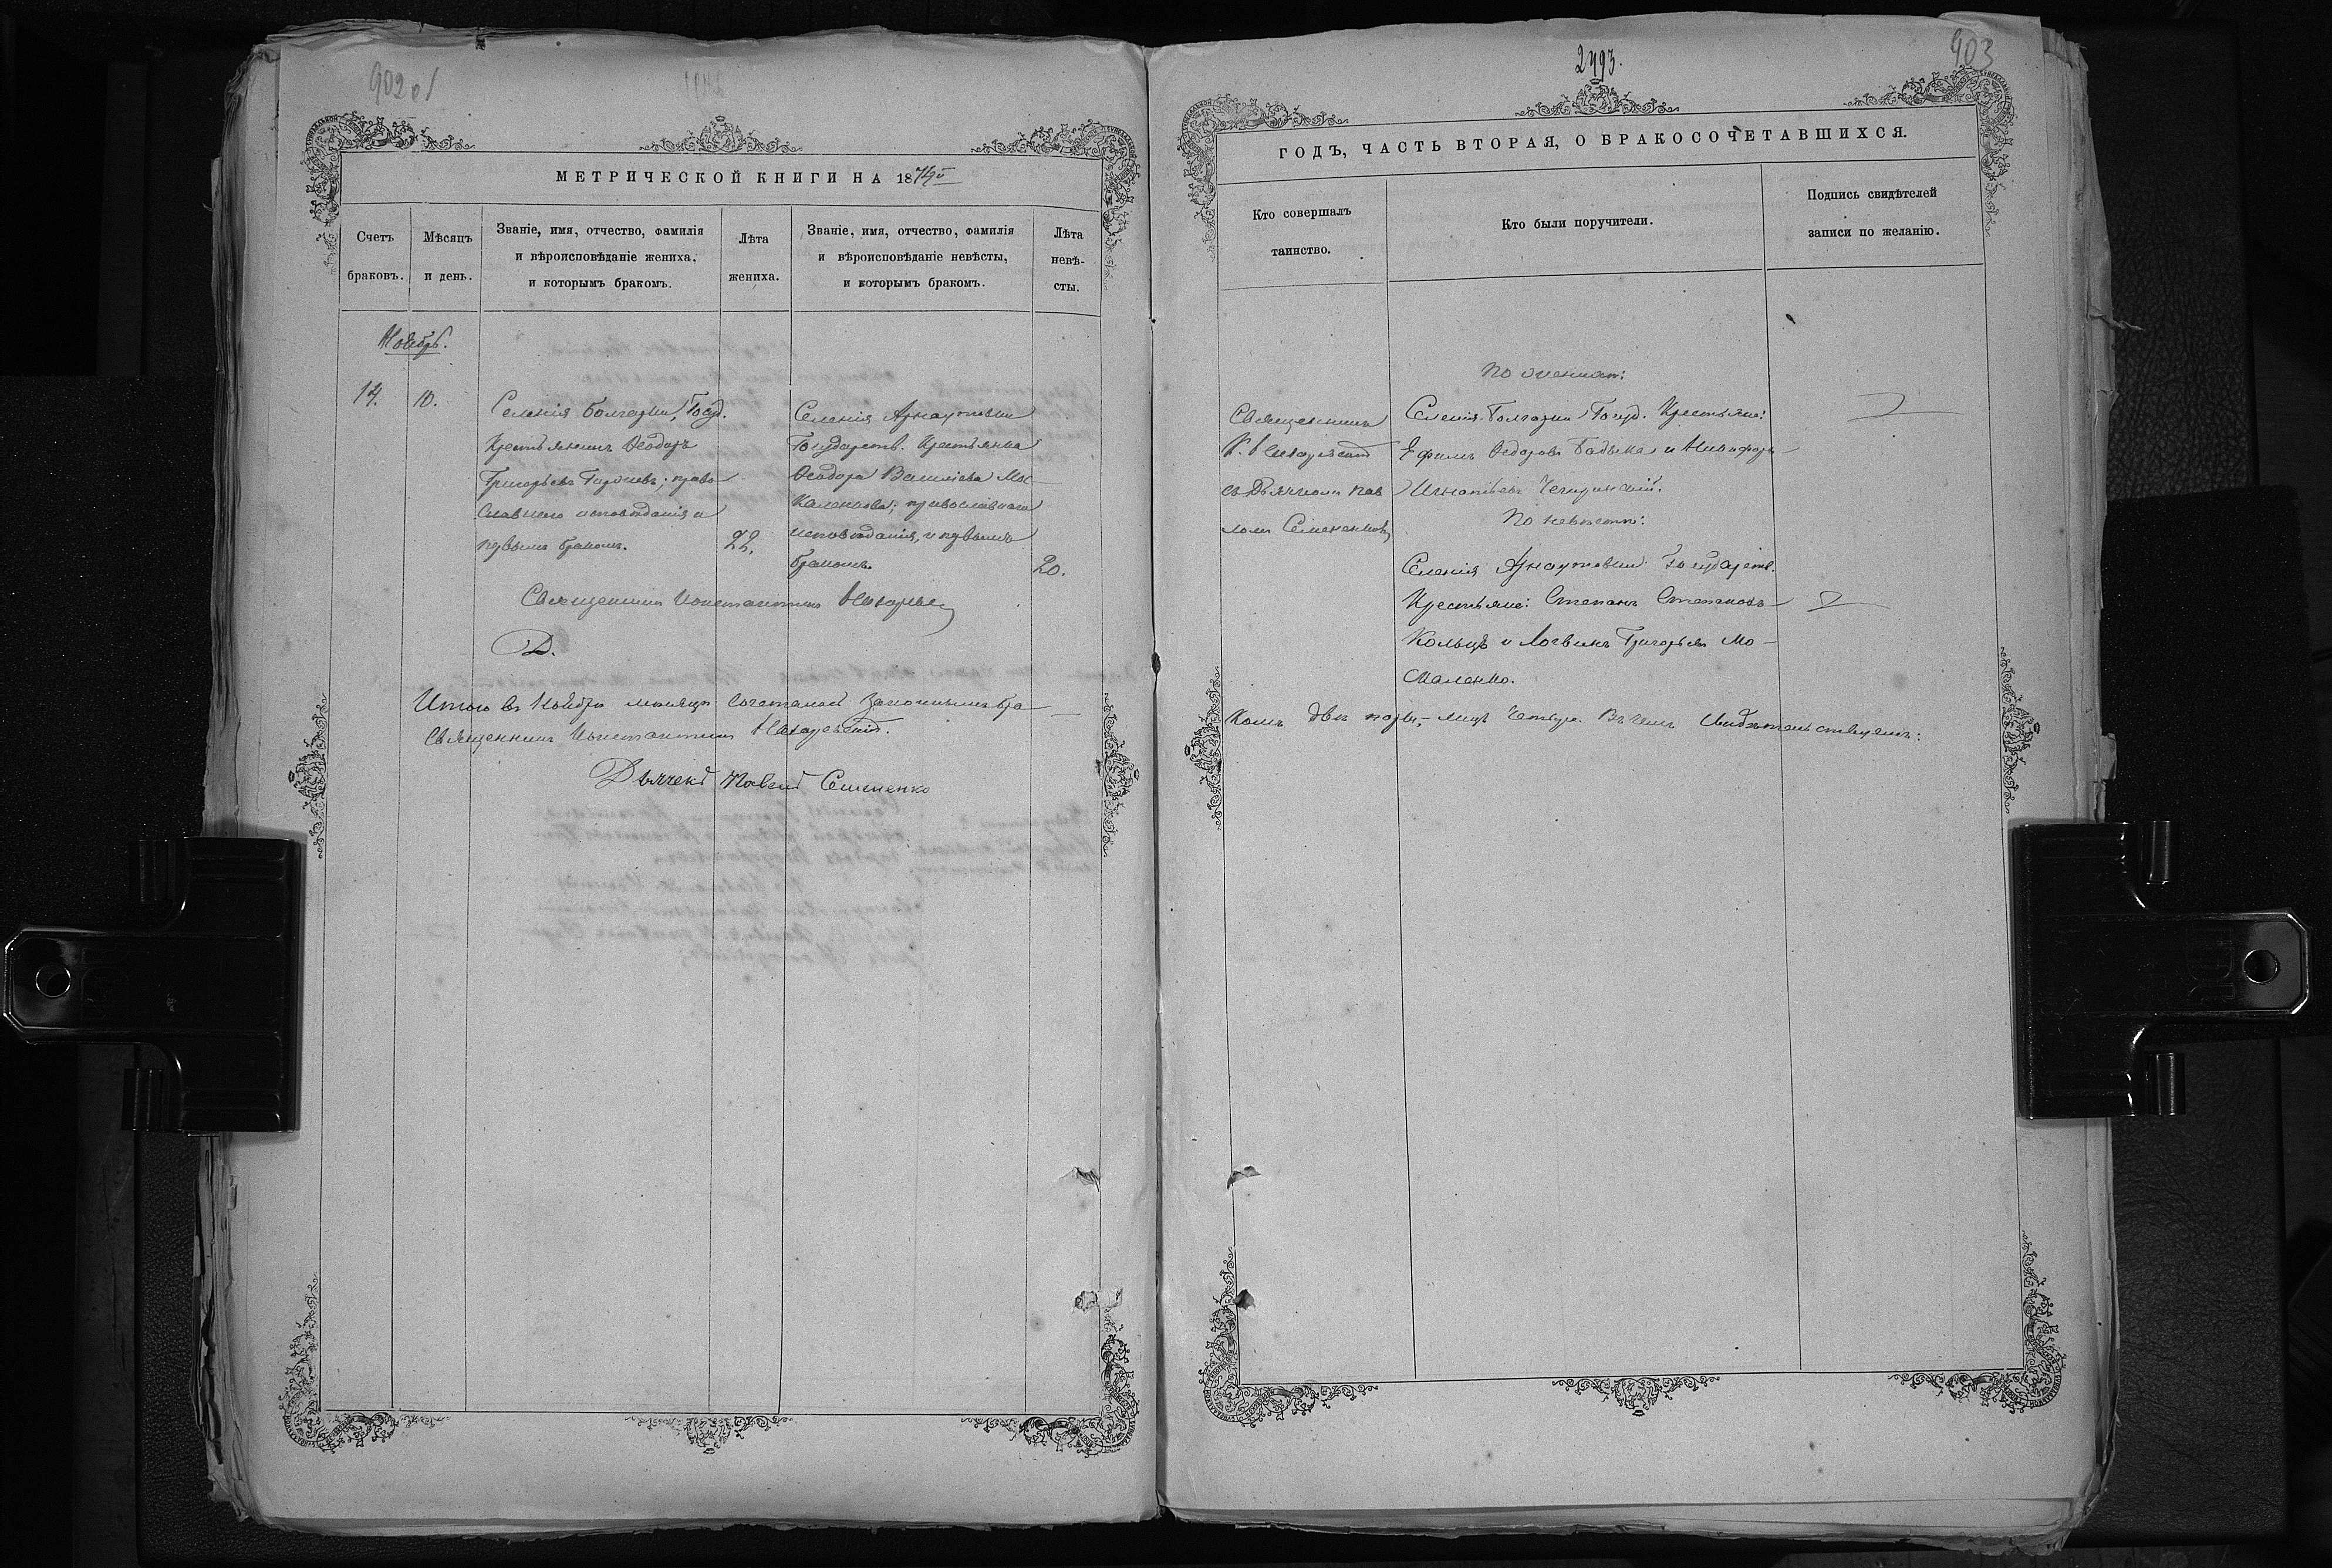 902 об
МЕТРИЧЕСКОЙ КНИГИ НА 1874й
Счетъ браковъ.
Мѣсяцъ и день.
Званіе, имя, отчество, фамилія
и вѣроисповѣданіе жениха,
и которымъ бракомъ.
Лѣта
жениха.
Званіе, имя, отчество, фамилія
и вѣроисповѣданіе невѣсты,
и которымъ бракомъ.
Лѣта
невѣ-
сты.
Ноябрь.
14. 10.
Селенія Болгарки, Госуд.
Крестьянинъ Ѳеодоръ
Григорьевъ; право
славнаго исповѣданія и
первымъ бракомъ. 22.
Селенія Арнаутовки
Государств. Крестьянка
Ѳеодора Василіева Мос
каленкова; православнаго
исповѣданія, и первымъ
бракомъ. 20.
Священникъ Константинъ
Д.
Итого въ Ноябрѣ мѣсяцѣ сочеталось законнымъ бра
Священникъ Константинъ
Дьячекъ Павелъ Семененко
2493.
903
ГОДЪ, ЧАСТЬ ВТОРАЯ, О БРАКОСОЧЕТАВШИХСЯ.
Кто совершалъ
таинство.
Кто были поручители.
Подпись свидѣтелей
записи по желанію.
Священникъ
К.
съ Дьячкомъ Пав
ломъ Семененкомъ
По женихѣ:
Селенія Болгарки Госуд. Крестьяне:
Ефимъ Ѳедоровъ и
Игнатьевъ
По невѣстѣ:
Селенія Арнаутовки Государств.
Крестьяне: Степанъ Степановъ
Кольцъ и Логвинъ Григорьевъ Мо-
скаленко.
комъ двѣ пары, – лицъ четыре. Въ чемъ свидѣтельствуемъ: